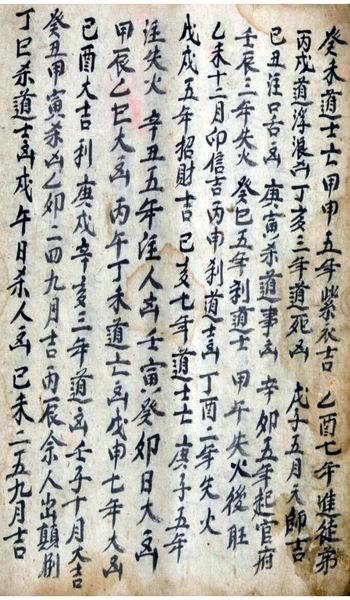 癸未道士亡甲申五年紫衣吉 乙酉七年進徒弟
丙戌道浮浪凶丁亥三年道死凶 戊子五月元師吉
己丑注口舌凶 庚寅杀道事凶 辛卯五年起官府
壬辰三年失火 癸巳五年利道士 甲午失火後旺
乙未十二月印信吉丙申刹道士凶 丁酉二年失火
戊戌五年招財吉 己亥七年道士亡 庚子五年
注失火 辛丑五年注人凶 壬寅癸卯日大凶
甲辰乙巳大凶 丙午丁未道亡凶戊申七年大凶
己酉大吉利 庚戌辛亥三年道凶壬子十月大吉
癸丑甲寅杀凶乙卯二四九月吉 丙辰余人出顛
丁巳杀道士凶戊午日杀人凶 己未二五九月吉